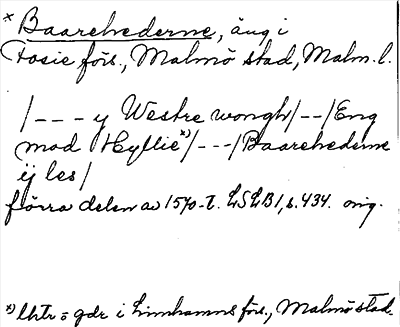 * Baarehederne, äng i
Fosie förs., Malmö stad, Malm.l.
/--- y Westre wongh/--/Eng
mod Hyllie*)/---/Baarehederne
ij les/
förra delen av 1570-t. LSLB1, s.434. orig.
*) Utr = gdr i Limhamns förs., Malmö stad.